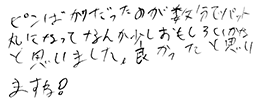 ピンばかりだったのが数分でパット
丸になってなんか少しおもしろいかな
と思いました。良かったと思い
ますね！